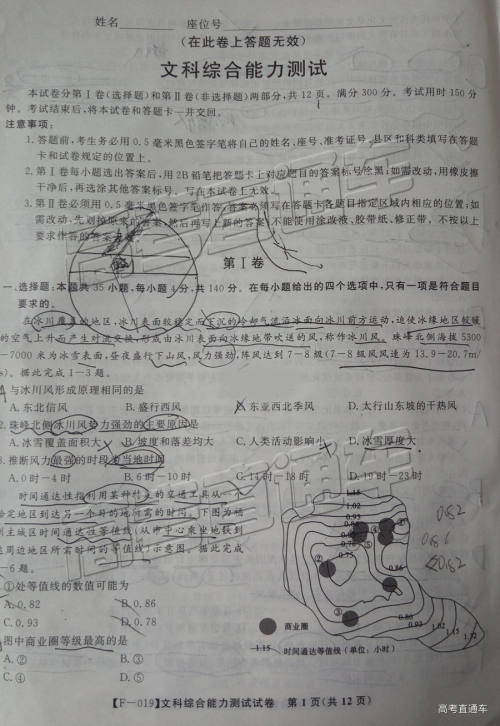 姓名 座位号
(在此卷上答题无效)
文科综合能力测试
本试卷分第Ⅰ卷(选择题)和第Ⅱ卷(非选择题)两部分,共12页。满分300分。考试用时150分
钟。考试结束后,将本试卷和答题卡一并交回。
注意事项:
1.答题前,考生务必用0.5毫米黑色签字笔将自己的姓名、座号、准考证号、县区和科类填写在答题
卡和试卷规定的位置上。
2.第Ⅰ卷每小题选出答案后,用2B铅笔把答题卡上对应题目的答案标号涂黑;如需改动,用橡皮擦
干净后,再选涂其他答案标号。写在本试卷上无效。
3.第Ⅱ卷必须用0.5毫米黑色签字笔作答,答案必须写在答题卡各题目指定区域内相应的位置;如
需改动,先划掉原来的答案,然后再写上新的答案;不能使用涂改液、胶带纸、修正带。不按以上
要求作答的答案无效。
第Ⅰ卷
一、选择题:本题共35小题,每小题4分,共140分。在每小题给出的四个选项中,只有一项是符合题目
要求的。
在冰川覆盖的地区,冰川表面较稳定而下沉的冷却气流沿冰面向冰川前方运动,迫使冰缘地区较暖
的空气上升而产生对流交换,形成由冰川表面向冰缘地带吹送的气流,称作冰川风。珠峰北侧海拔5300
-7000米为冰雪表面,昼夜盛行下山风,风力强劲,阵风达到7-8级(7-8级风风速为13.9-20.7m/
s)。据此完成1-3题。
与冰川风形成原理相同的是
A.东北信风 B.盛行西风 C.东亚西北季风 D.太行山东坡的干热风
2.珠峰北侧冰川风势力强劲的主要原因是
A.冰雪覆盖面积大 B.坡度和落差均大 C.人类活动影响小 D.冰雪厚度大
3.推断风力最强的时段为当地时间
A.0时-4时 B.6时-10时 C.14时-18时 D.19时-23时
时间通达性指利用某种特定的交通工具从一个
给定地区到达另一个地的地所需的时间。下图为某
市主城区时间通达性等值线(从市中心乘坐地铁到
达周边地区所需时间的等值线)示意图。据此完成
-6题。
①处等值线的数值可能为
A.0.82 B.0.86
C.0.93 D.0.78
图中商业圈等级最高的是
A.② B.③
C.④ D.⑤
1.15
1.00
0.93
0.86
0.80
0.76
0.75
①
②
③
④
⑤
0.86
0.80
0.93
1.00
1.15
1.32
1.52
商业圈
1.15 时间通达等值线(单位:小时)
0.82
0.86
<0.82
【F-019】文科综合能力测试试卷 第1页(共12页)
高考直通车
高考直通车
高考直通车